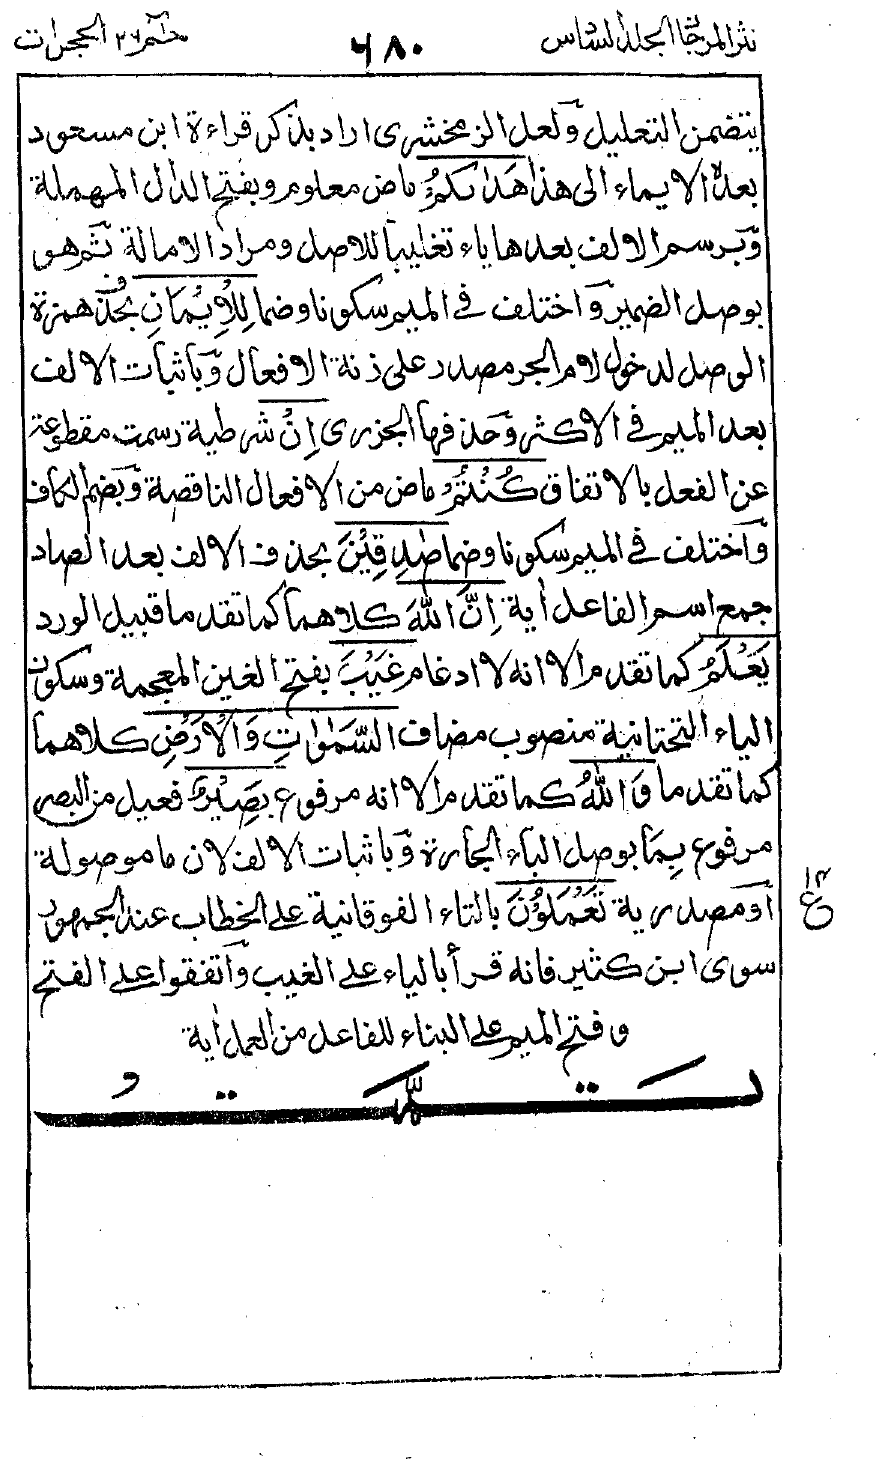 نثر المرجان الجلد السادس
٦٨٠
حٰم ٢٦ الحجرات
يتضمن التعليل وٓلعل الزمخشرى اراد بذكر قراءة ابن مسعود
بعده الايماء الى هذا هَدٰىكُمْ ماض معلوم وبفتح الدال المهملة
وٓبرسم الالف بعدها ياء تغليبا للاصل ومراد الامالة ثم هو
بوصل الضمير وٓاختلف فى الميم سكونا وضما لِلْاِيْمَانِ بحذف همزة
الوصل لدخول لام الجر مصدر على زنة الافعال وٓباثبات الالف
بعد الميم فى الاكثر وٓحذفها الجزرى اِنْ شرطية رسمت مقطوعة
عن الفعل بالاتفاق كُنْتُمْ ماض من الافعال الناقصة وٓبضم الكاف
وٓاختلف فى الميم سكونا وضما صٰدِقِيْنَ بحذف الالف بعد الصاد
جمع اسم الفاعل اٰية اِنَّ اللّٰهَ كلاهما كما تقدما قبيل الورد
يَعْلَمُ كما تقدم الا انه لا ادغام غَيْبَ بفتح الغين المعجمة وسكون
الياء التحتانية منصوب مضاف السَّمٰوٰتِ وَالْاَرْضِ كلاهما
كما تقدما وَاللّٰهُ كما تقدم الا انه مرفوع بَصِيْرٌ فعيل من البصر
مرفوع بِمَا بوصل الباء الجارة وٓباثبات الالف لان ما موصولة
اوٓ مصدرية تَعْمَلُوْنَ بالتاء الفوقانية على الخطاب عند الجمهور
سوى ابن كثير فانه قرأ بالياء على الغيب وٓاتفقوا على الفتح
و فتح الميم على البناء للفاعل من العمل اٰية
١٤
ع